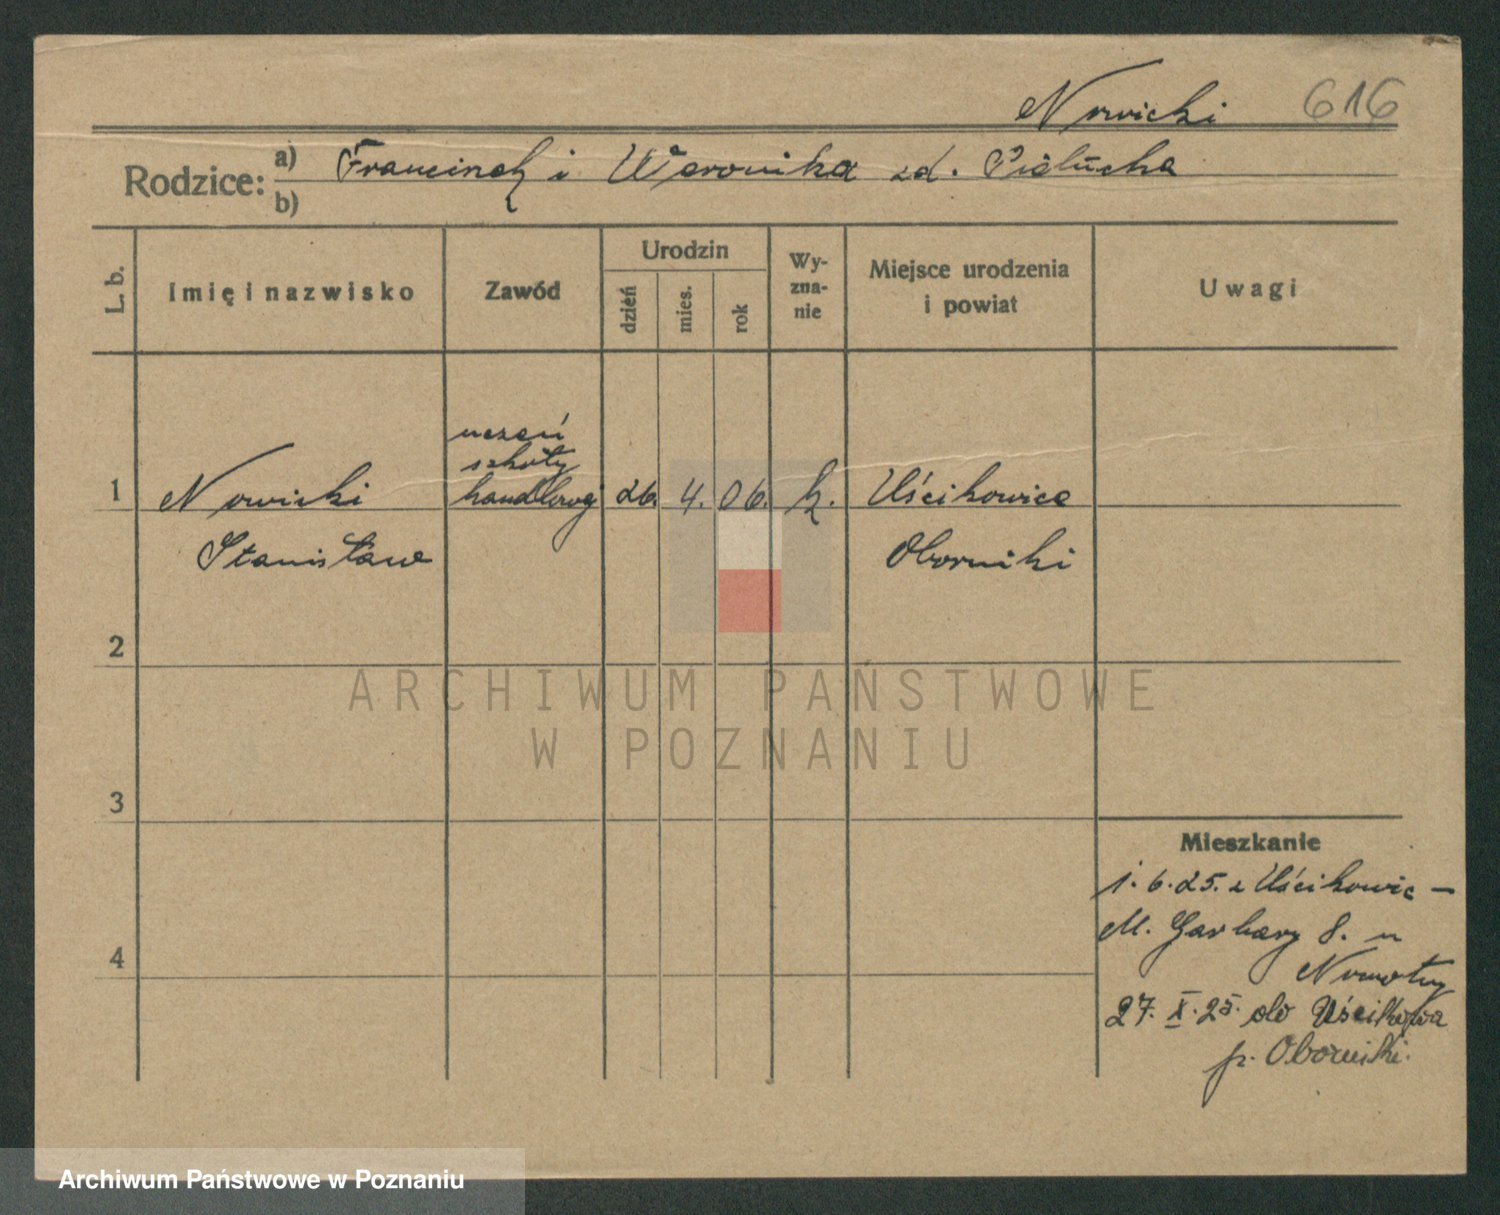 Nowicki 616
Rodzice: a) Franciszek i Weronika zd. Piełucha
b)
L. b. Imię i nazwisko Zawód Urodzin dzień mies. rok Wy-zna-nie Miejsce urodzenia i powiat Uwagi
uczeń
szkoły
1 Nowicki handlowej 26. 4. 06. k. Uścikowice
Stanisław Oborniki
2
ARCHIWUM PAŃSTWOWE
W POZNANIU
3
Mieszkanie
1.6.25. z Uścikowic –
M. Garbary 8. u
4
27. X. 25. do
p. Oborniki.
Archiwum Państwowe w Poznaniu